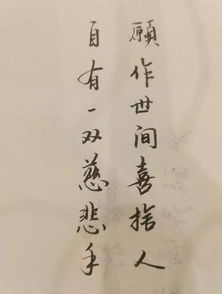 願作世间喜捨人
自有一双慈悲手